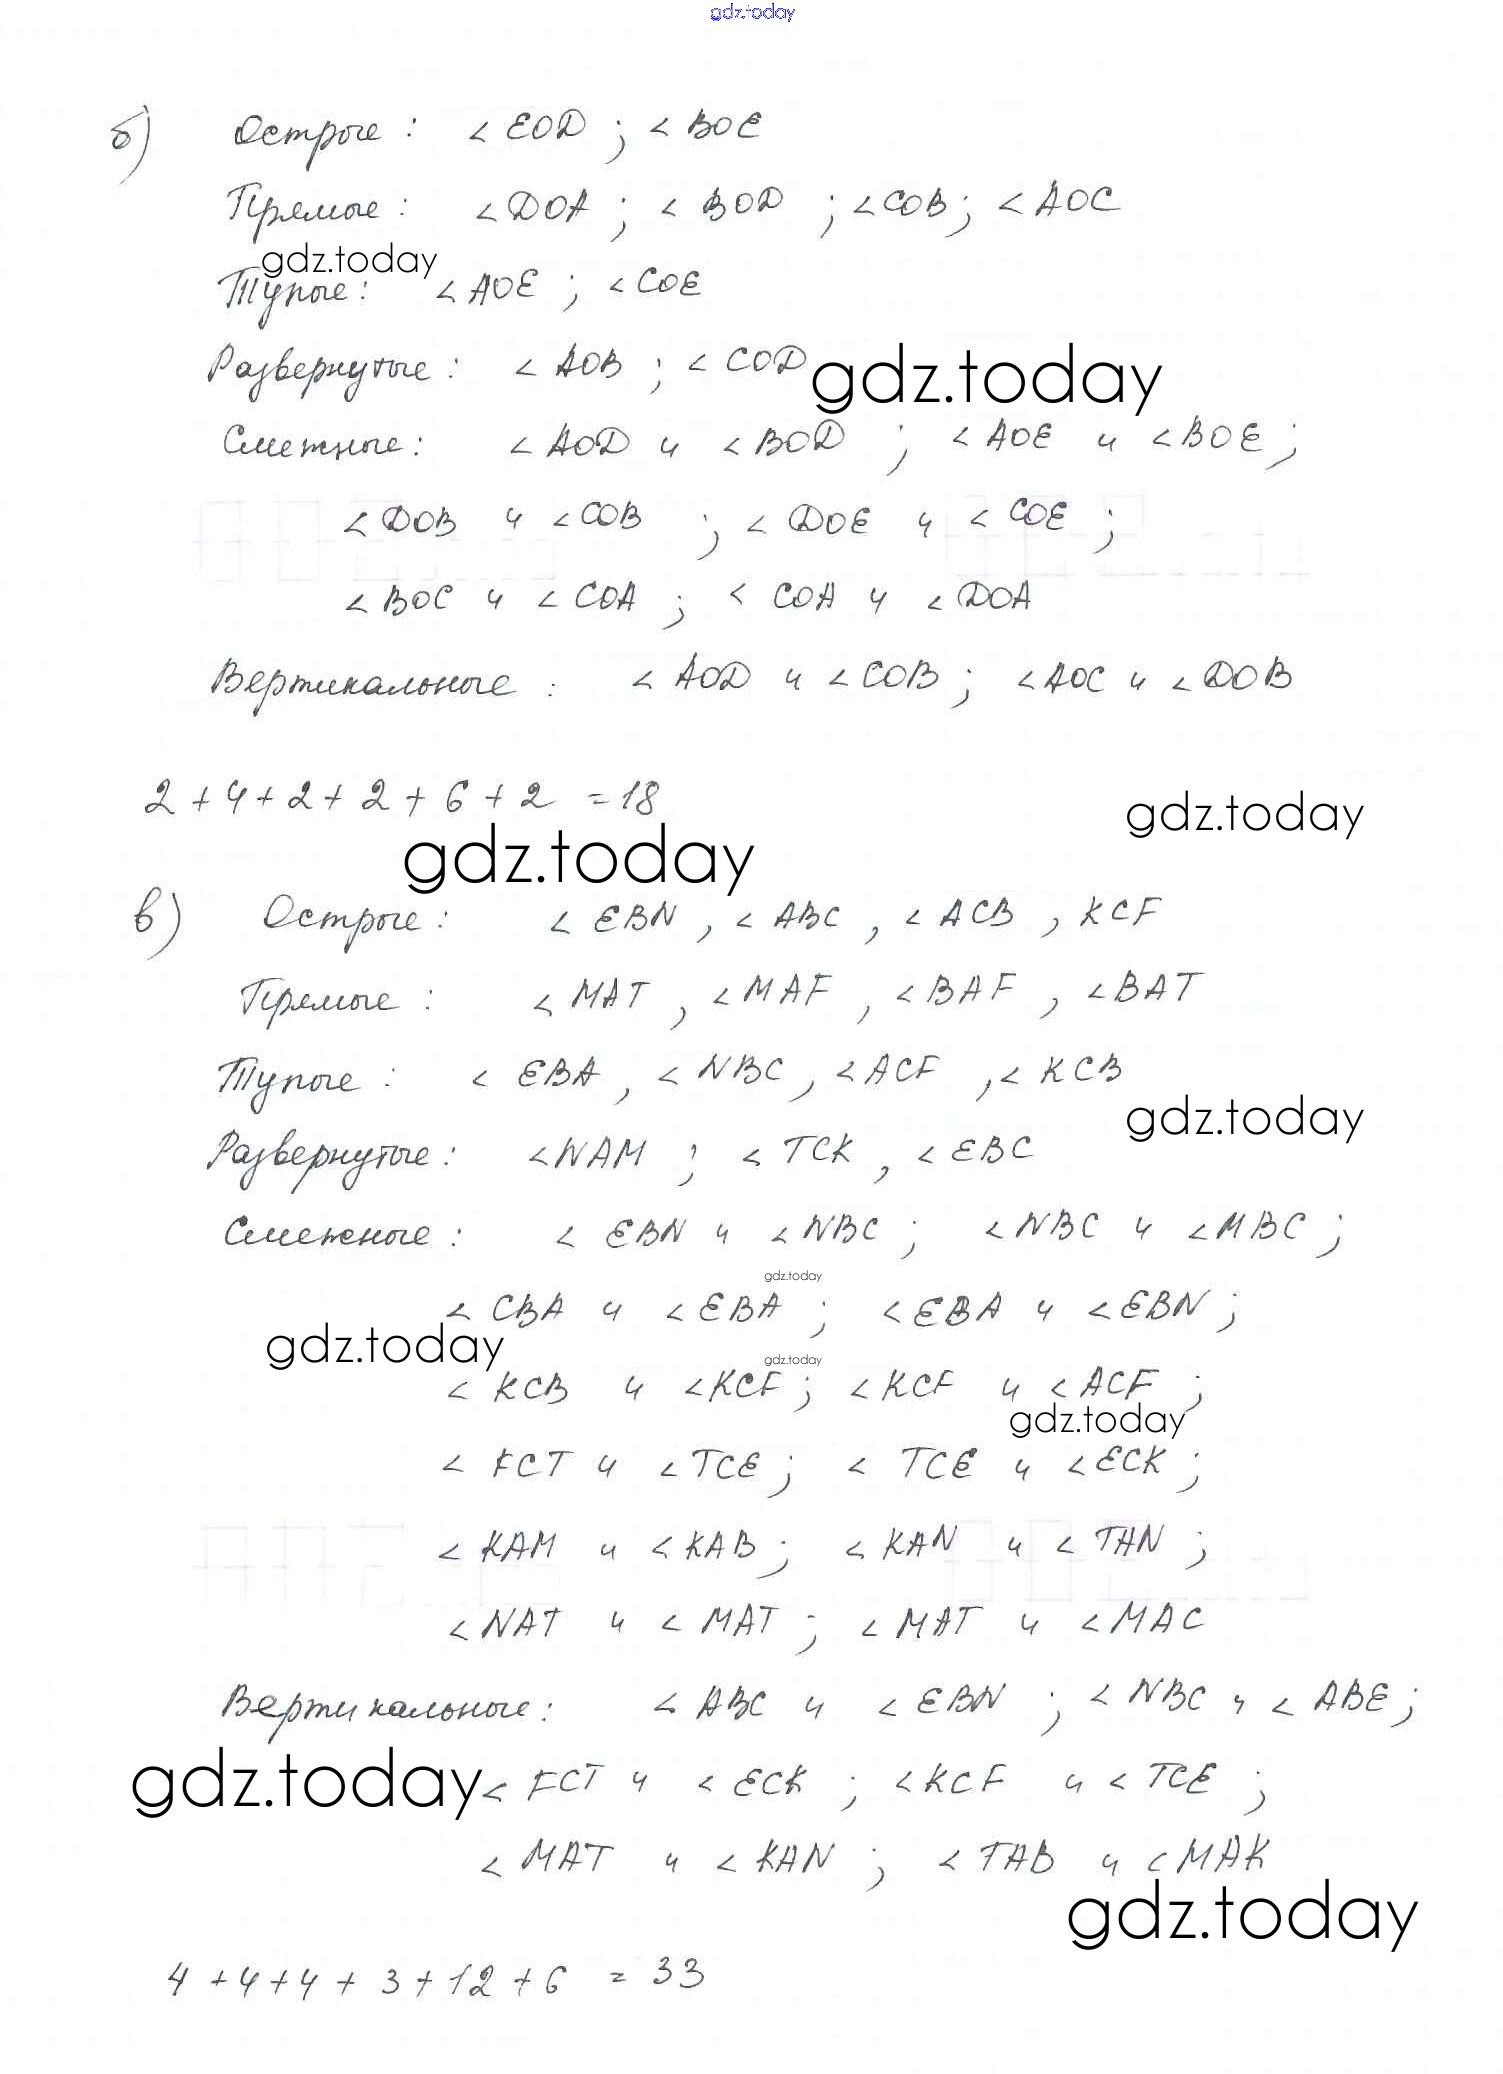 gdz.today
б) Острые: ∠EOD; ∠BOE
Прямые: ∠DOA; ∠BOD; ∠COB; ∠AOC
gdz.today
Тупые: ∠AOE; ∠COE
Развернутые: ∠AOB; ∠COD
gdz.today
Смежные: ∠AOD и ∠BOD; ∠AOE и ∠BOE;
∠DOB и ∠COB; ∠DOE и ∠COE;
∠BOC и ∠COA; ∠COA и ∠DOA
Вертикальные: ∠AOD и ∠COB; ∠AOC и ∠DOB
2+4+2+2+6+2 =18
gdz.today
gdz.today
в) Острые: ∠EBN, ∠ABC, ∠ACB, KCF
Прямые: ∠MAT, ∠MAF, ∠BAF, ∠BAT
Тупые: ∠EBA, ∠NBC, ∠ACF, ∠KCB
gdz.today
Развернутые: ∠NAM; ∠TCK, ∠EBC
Смежные: ∠EBN и ∠NBC; ∠NBC и ∠MBC;
gdz.today
∠CBA и ∠EBA; ∠EBA и ∠EBN;
gdz.today
gdz.today
∠KCB и ∠KCF; ∠KCF и ∠ACF;
gdz.today
∠FCT и ∠TCE; ∠TCE и ∠ECK;
∠KAM и ∠KAB; ∠KAN и ∠TAN;
∠NAT и ∠MAT; ∠MAT и ∠MAC
Вертикальные: ∠ABC и ∠EBN; ∠NBC и ∠ABE;
gdz.today
∠FCT и ∠ECK; ∠KCF и ∠TCE;
∠MAT и ∠KAN; ∠TAB и ∠MAK
gdz.today
4+4+4+3+12+6 = 33